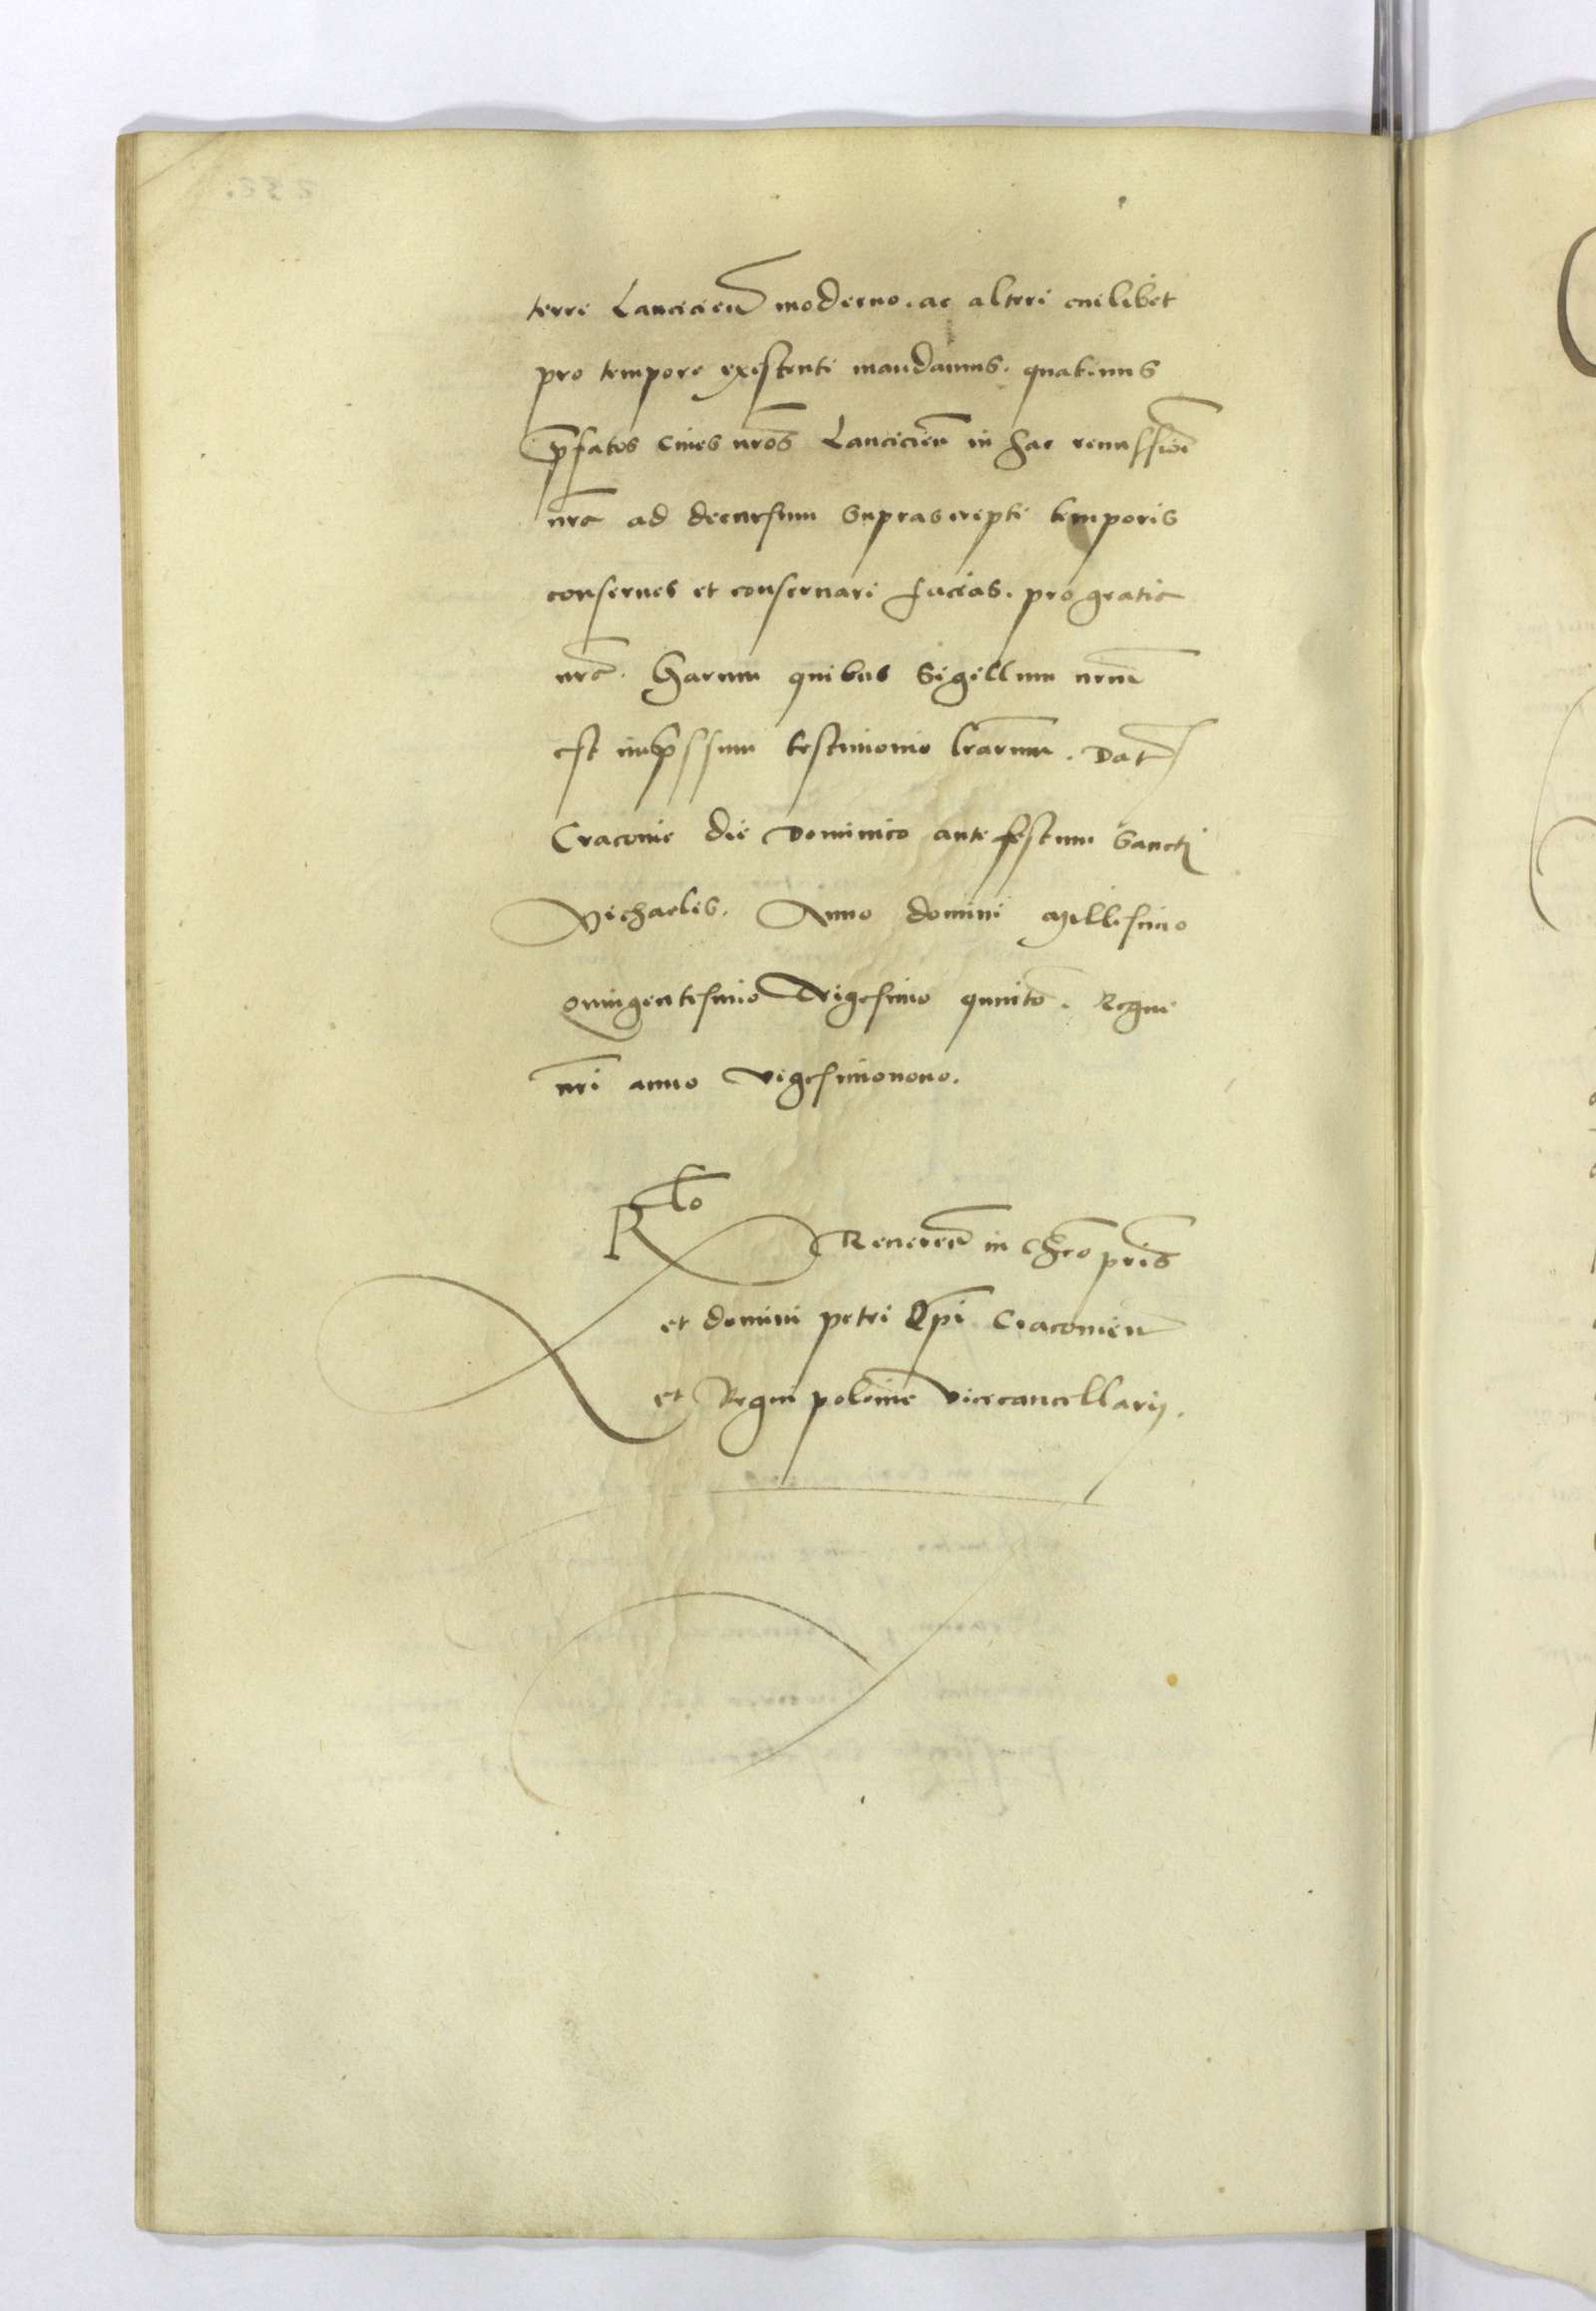 terre Lancicien moderno. ac alteri cuilibet
pro tempore existenti mandamus. quatinus
prefatos Cives nros Lancicien in hac remissioe
nra ad decursum suprascripti temporis
conserves et conservari facias. pro gratia
nra. Harum quibus Sigillum nrum
est impssum testimonio lrarum. Dat
Cracovie die Dominico ante festum Sancti
Michaelis. Anno domini Millesimo
Quingentesimo Trigesimo quinto. Regni
nri anno vigesimonono.
Rlo
Reveren in Chro pris
et domini petri Epi Cracovien
et Regni polonie Vicecancellarij.